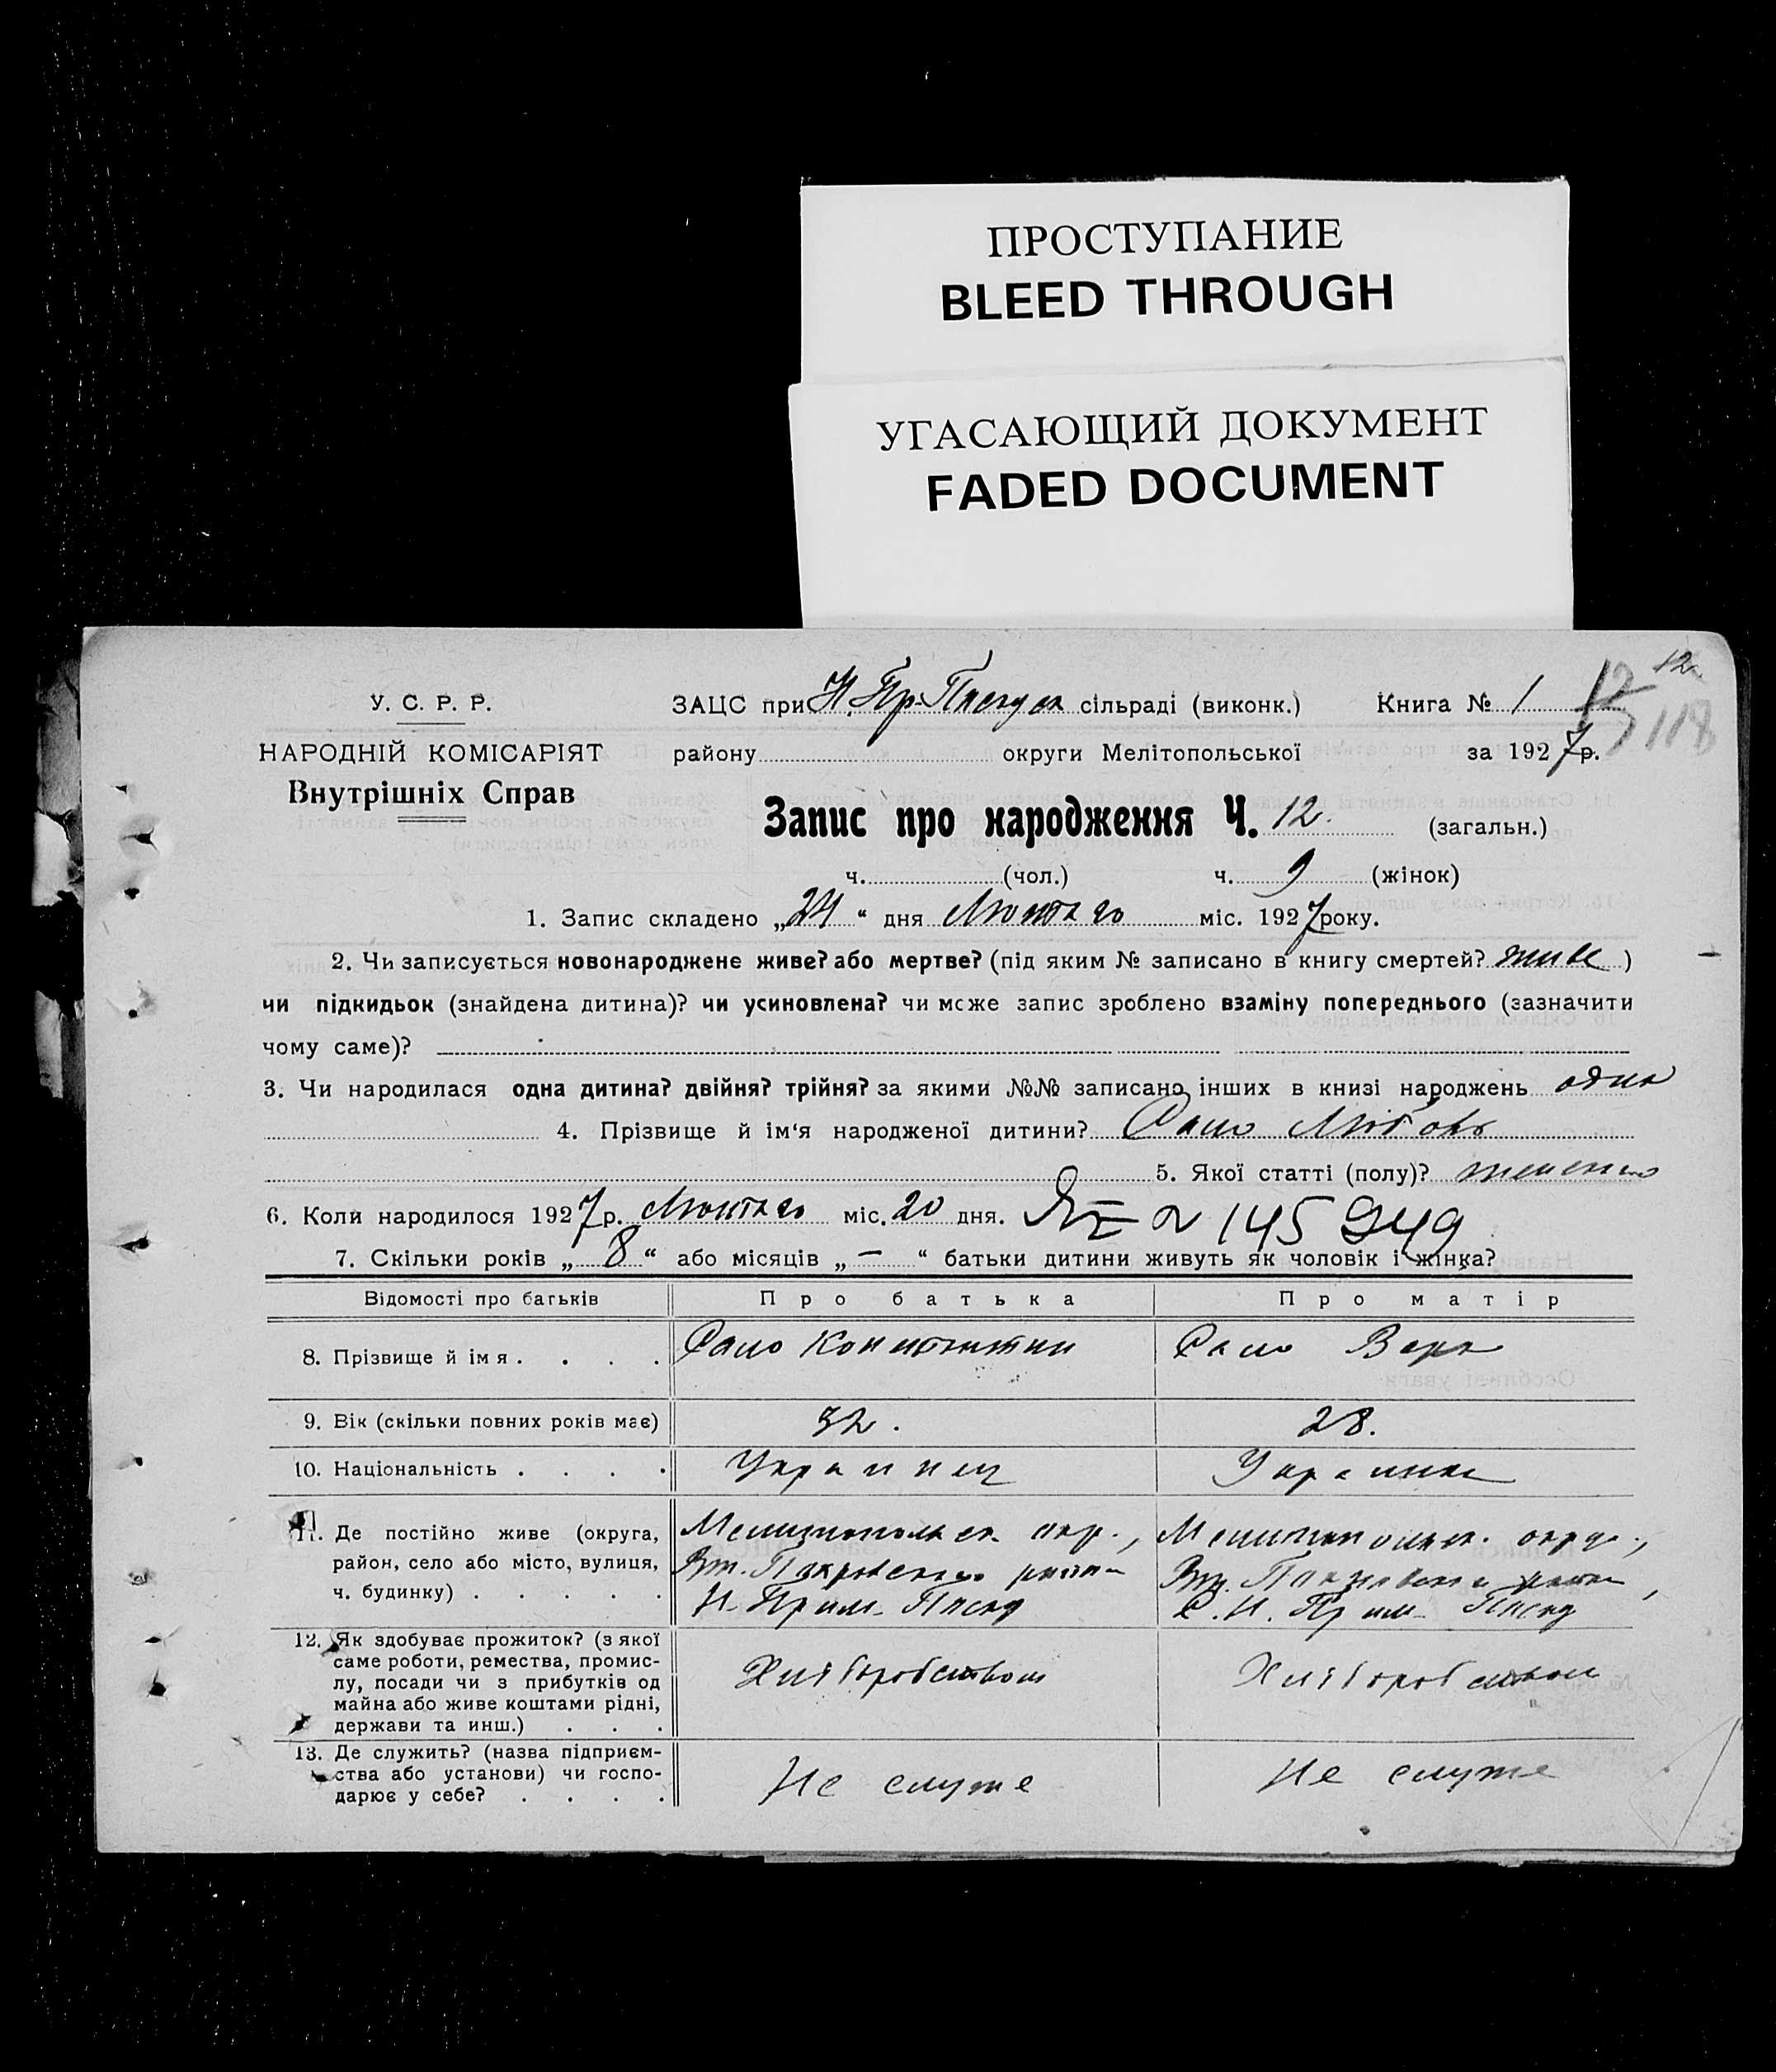 ПРОСТУПАНИЕ
BLEED THROUGH
УГАСАЮЩИЙ ДОКУМЕНТ
FADED DOCUMENT
12
12
118
У. С. Р. Р. ЗАЦС при Н. Пр. сільраді (виконк.) Книга № 1
НАРОДНІЙ КОМІСАРІЯТ району округи Мелітопольської за 1927 р.
Внутрішніх Справ
Запис про народження Ч. 12. (загальн.)
ч. (чол.) ч. 9 (жінок)
1. Запис складено „24“ дня Лютого міс. 1927 року.
2. Чи записується новонароджене живе? або мертве? (під яким № записано в книгу смертей? живе)
чи підкидьок (знайдена дитина)? чи усиновлена? чи може запис зроблено взаміну попереднього (зазначити
чому саме)?
3. Чи народилася одна дитина? двійня? трійня? за якими №№ записано інших в книзі народжень одна
4. Прізвище й ім‘я народженої дитини? Сало Любовь
5. Якої статті (полу)?
6. Коли народилося 1927 р. Лютого міс. 20 дня. 145949
7. Скільки років „8“ або місяців „—“ батьки дитини живуть як чоловік і жінка?
Відомості про батьків Про батька Про матір
8. Прізвище й ім я . . . . Сало Константин Сало Вера
9. Вік (скільки повних років має) 32. 28.
10. Національність . . . . Украинец Украинка
11. Де постійно живе (округа, окр.,
район, село або місто, вулиця,
ч. будинку) . . . . . Н. Прим. С. Н. Прим.
12. Як здобуває прожиток? (з якої
саме роботи, ремества, промис-
лу, посади чи з прибутків од Хліборобством Хліборобством
майна або живе коштами рідні,
держави та инш.) . . .
13. Де служить? (назва підприєм-
ства або установи) чи госпо- Не служе Не служе
дарює у себе? . . . .